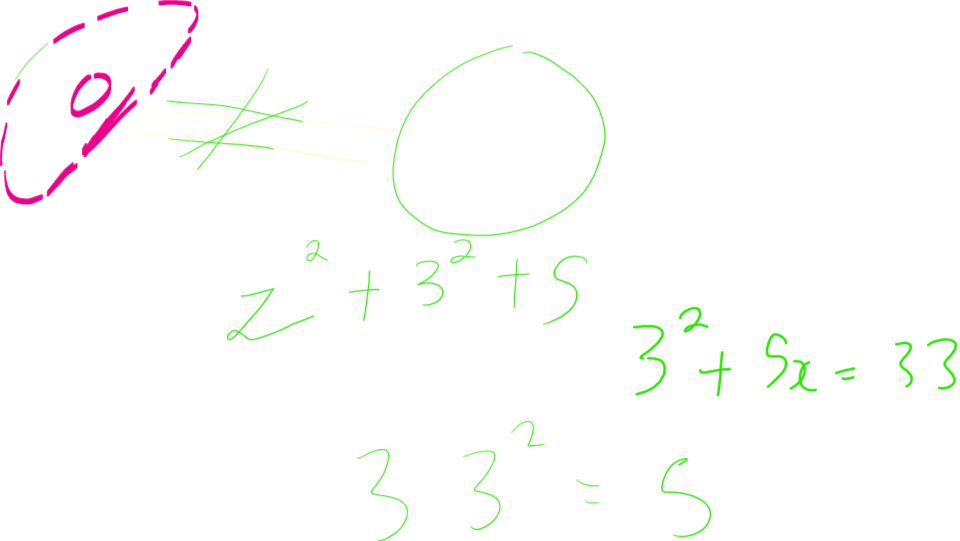 z² + 3² + 5
3² + 5x = 33
3 3² = 5